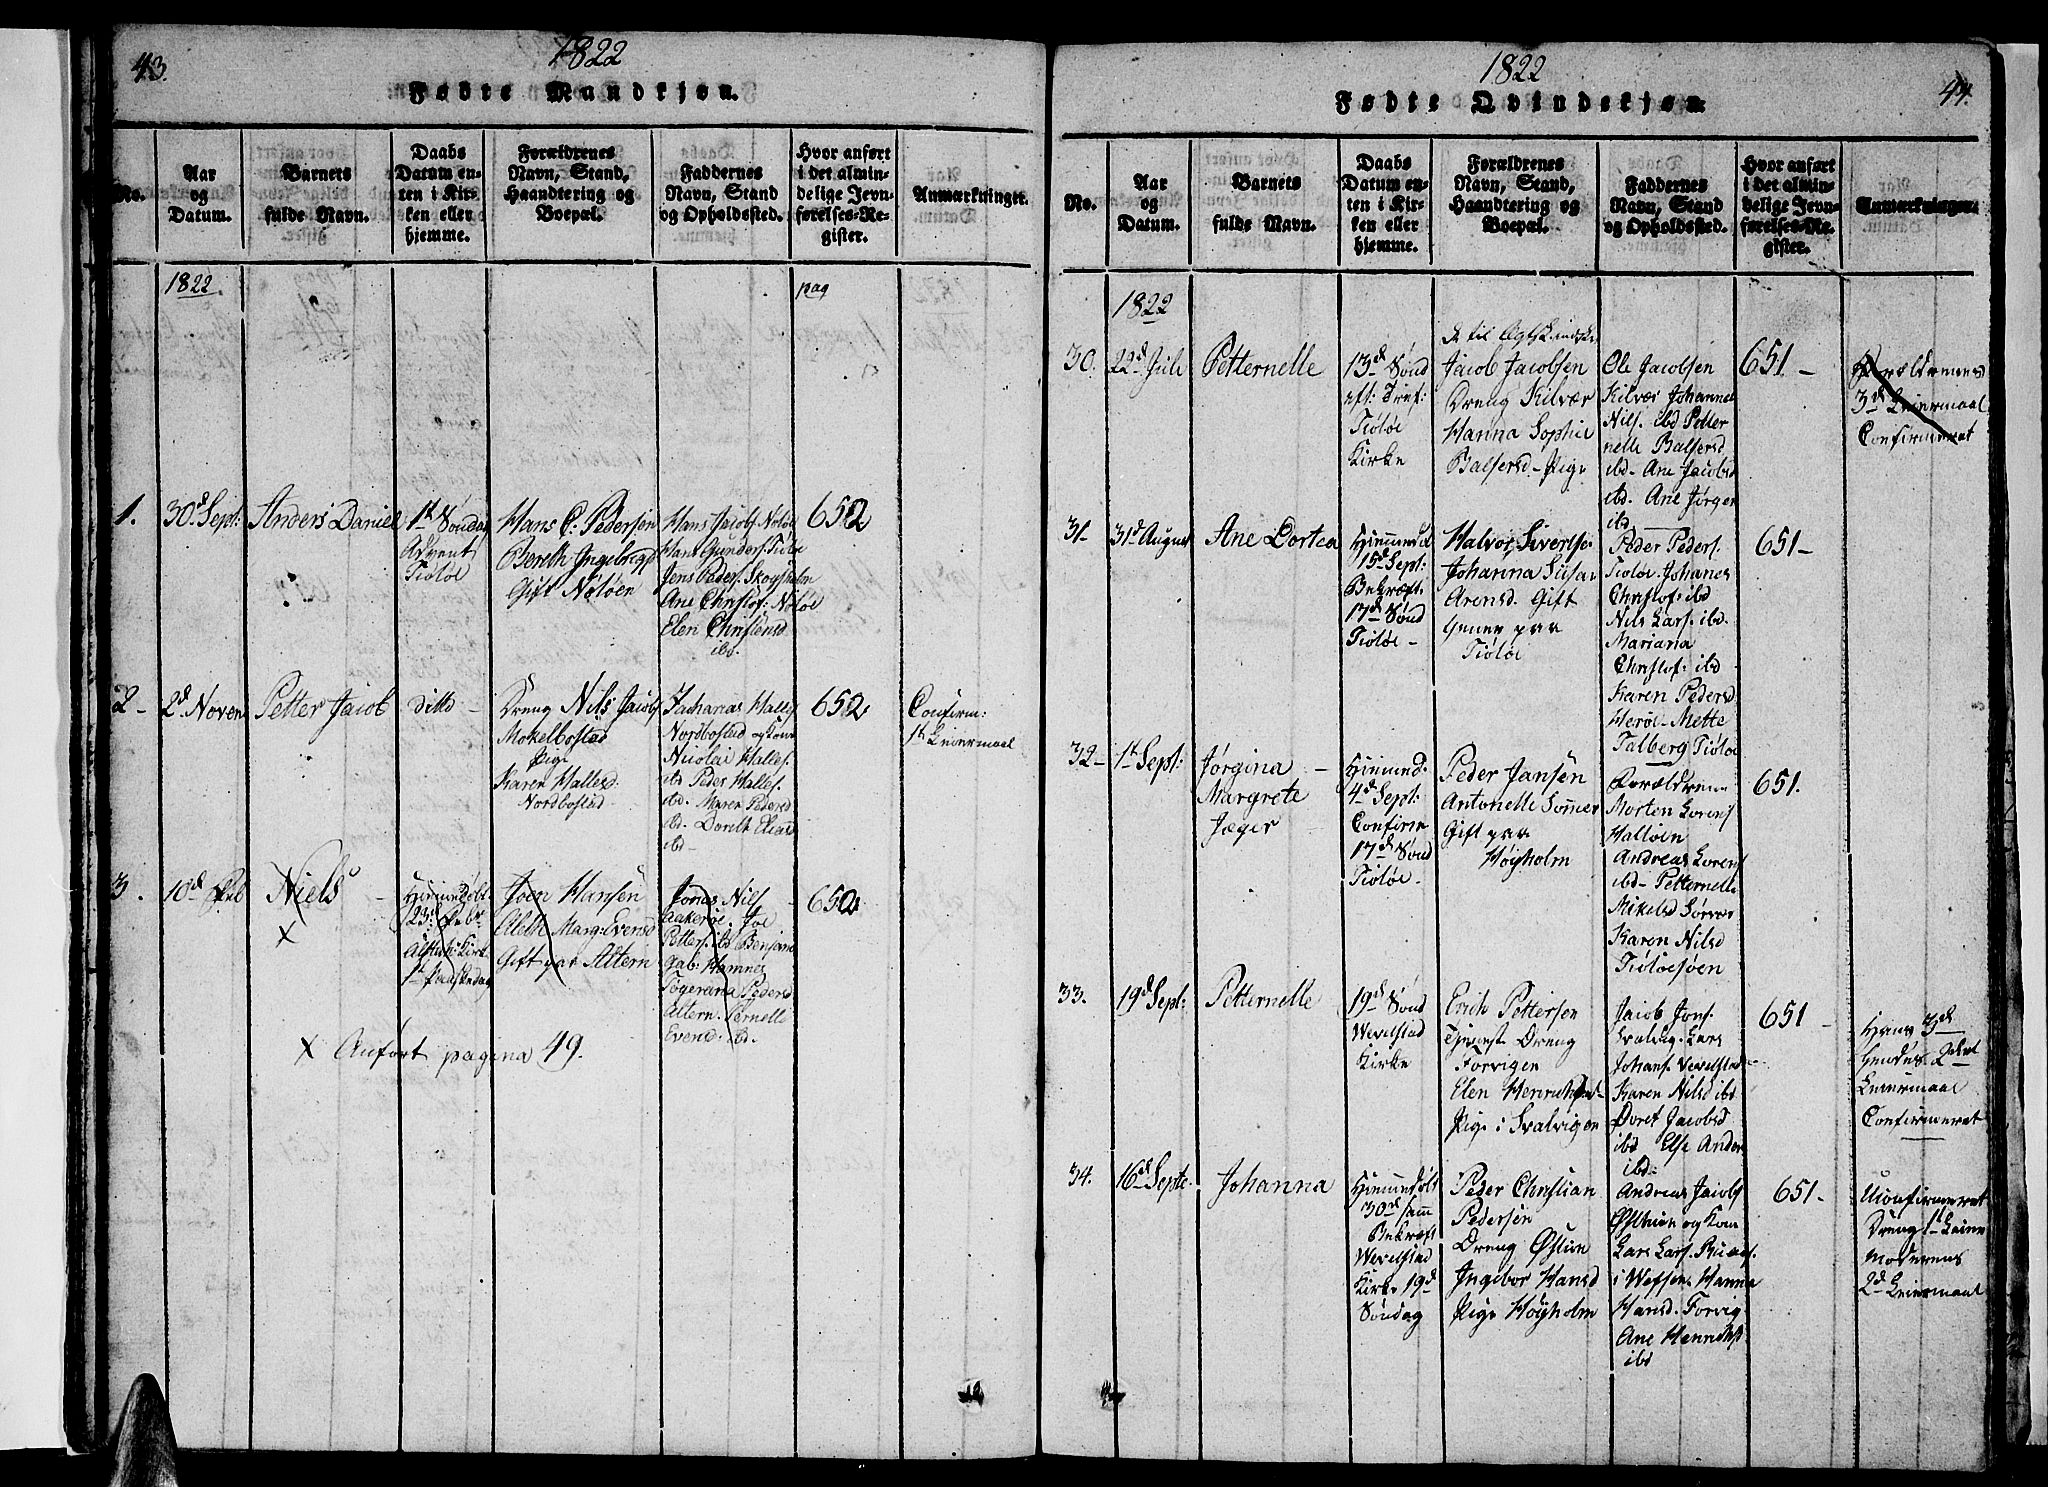 43.
1822
Fødte Mandkjøn.
No.
Aar
og
Datum.
Barnets
fulde Navn.
Daabs
Datum en-
ten i Kir-
ken eller
hjemme.
Forældrenes
Navn, Stand,
Haandtering og
Boepæl.
Faddernes
Navn, Stand
og Opholdssted.
Hvor anført
i det almin-
delige Jevn-
førelses-Re-
gister.
Anmærkninger.
1822
pag
1.
30d Sept:
Anders Daniel
1st Søndag
Advent
Tiøtøe
Hans C. Pedersen
Bereth Ingebregs
Gift Nøløen
Hans Jacobs Nøløe
Hans Gunders. Tiøtøe
Jens Peders. Skogsholm
Ane Christof: Nøløe
Elen Christensd
ibd.
652
2-
2d Novem
Petter Jacob
ditto -
Dreng Nils Jacobs
Mokelbostad
Pige
Karen Hallesd:
Nordbostad
Zacharias Halles
Nordbostad og Kone
Nicolai Halles.
ibd Peder Halles.
ibd. Maren Pedersd
ibd. Doreth Eliasd
ibd-
652
Confirm:
1st Leiermaal
3.
10d Feb
Niels
x
Hiemmedøbt
23d Febr
Alstah: Kirk
1st Paaskedag
Joen Hansen
Aleth Marg: Evensd
Gift paa Altern
Jonas Nils
Aakerøe. Joe
Petters. ibd Benjam
Gab: Hamnes
Tøgerana Pedersd
Altern. Pernelle
Evensd. ibd.
652
x Anført pagina 49.
1822
44.
Fødte Qvindekjøn.
No.
Aar
og
Datum.
Barnets
fulde Navn.
Daabs
Datum en-
ten i Kir-
ken eller
hjemme.
Forældrenes
Navn, Stand,
Haandtering og
Boepæl.
Faddernes
Navn, Stand
og Opholdssted.
Hvor anført
i det almin-
delige Jevn-
førelses-Re-
gister.
Anmærkninger.
1822
30.
22d Juli
Petternelle
13d Sønd
eft: Tref:
Tiøtøe
Kirke
Jacob Jacobsen
Dreng Kilvær
Hanna Sophie
Balsersd - Pige
Ole Jacobsen
Kilvær Johannes
Nils. ibd Petter
nelle Balsersd
ibd. Ane Jacobsd
ibd. Ane Jørgen
ibd
651 -
Forældrenes
3d Leiermaal
Confirmeret
31-
31d August
Ane Dortea
Hiemmed
15d Sept:
Bekræft:
17d Sønd
Tiøtøe -
Halvor Sivertse
Johanna Susan
Arensd. Gift
paa
Tiøtøe
Peder Peders.
Tiøtøe. Johanes
Christof: ibd
Nils Lars. ibd.
Mariana
Christof: ibd
Karen Pedersd
Herøe - Mette
Talberg Tiøtøe
651 -
32-
1st Sept:
Jørgina -
Margrete
Jæger
Hiemmed.
4d Sept:
Confirm
17d Sønd
Tiøtøe -
Peder Jansen
Antonelle Sommer
Gift paa
Høyholm
Forældrene
Morten Lorens
Halløen
Andreas Lorens
ibd - Petternelle
Mikelsd Sørvær
Karen Nilsd
Tiøtøesøen
651.
33.
19d Sept:
Petternelle
19d Sønd
Wevelstad
Kirke
Erich Pettersen
Tjenest Dreng
Forvigen
Elen Henrichsd -
Pige i Svalvigen
Jacob Jons.
Svalvig. Lars
Johans. Vevelstad
Karen Nilsd ibd
Doret Jacobsd
ibd Else Anders
ibd.
651 -
Hans 3d
Hendes 2det
Leiermaal
Confirmeret
34.
16d Septe:
Johanna
Hiemmedøbt
30d sam
Bekræft
Wevelstad
Kirke 19d
Søndag
Peder Christian
Pedersen
Dreng Østuen
Ingebor Hansd
Pige Høyholm
Andreas Jacobs
Østuen og Kone
Lars Lars.
i Wefsen Hanna
Hansd. Forvig
Ane Henrichs
ibd
651 -
Uconfirmeret
Dreng 1st Leier
Moderens
2d Leiermaal